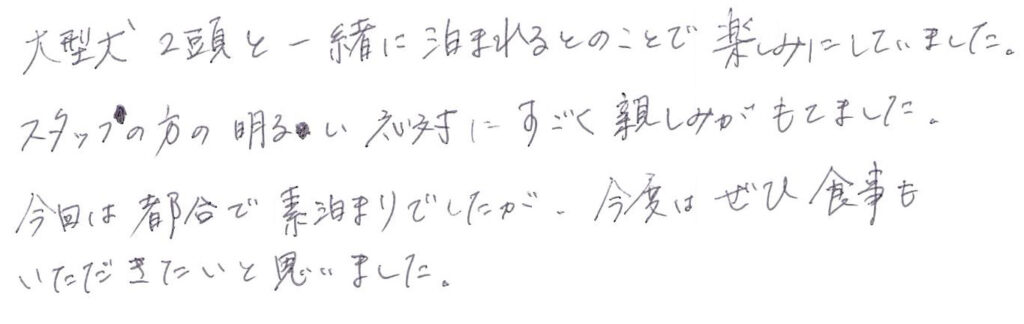 大型犬2頭と一緒に泊まれるとのことで楽しみにしていました。
スタッフの方の明るい応対にすごく親しみがもてました。
今回は都合で素泊まりでしたが、今度はぜひ食事も
いただきたいと思いました。